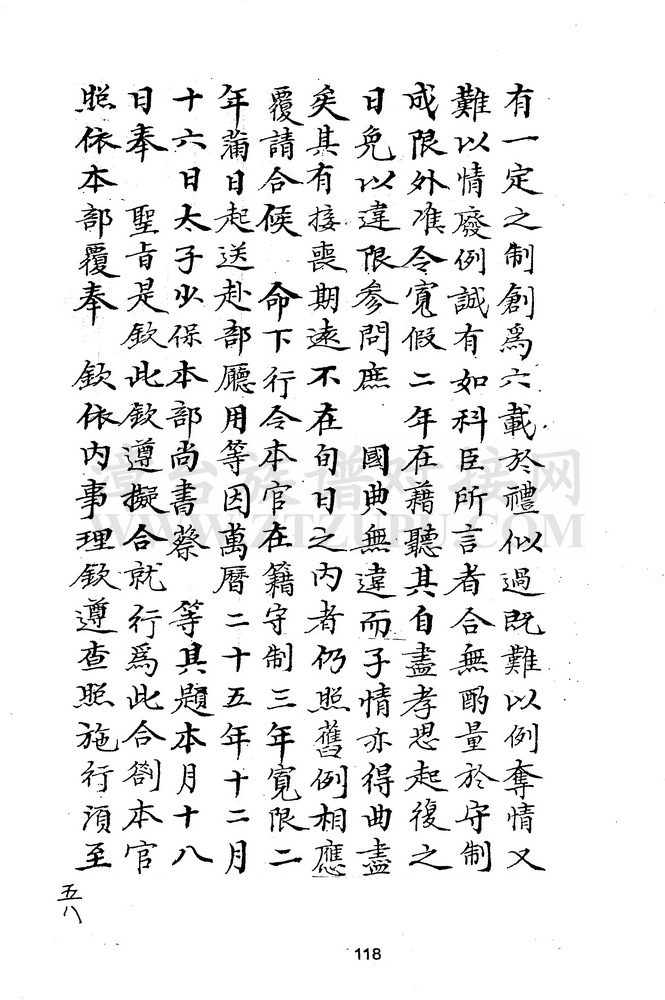 有一定之制創爲六載於禮似過既難以例奪情又
難以情廢例誠有如科臣所言者合無酌量於守制
成限外准令寬假二年在藉聽其自盡孝思起復之
日免以違限參問庶　國典無違而子情亦得曲盡
矣其有接喪期遠不在旬日之内者仍照舊例相應
覆請合候　命下行令本官在籍守制三年寬限二
年滿日起送赴部廳用等因萬曆二十五年十二月
十六日太子少保本部尚書蔡　等具題本月十八
日奉　聖旨是欽此欽遵擬合就行爲此合劄本官
照依本部覆奉　欽依内事理欽遵查照施行須至
五八
118
漳台族谱对接网
WWW.ZTZUPU.COM